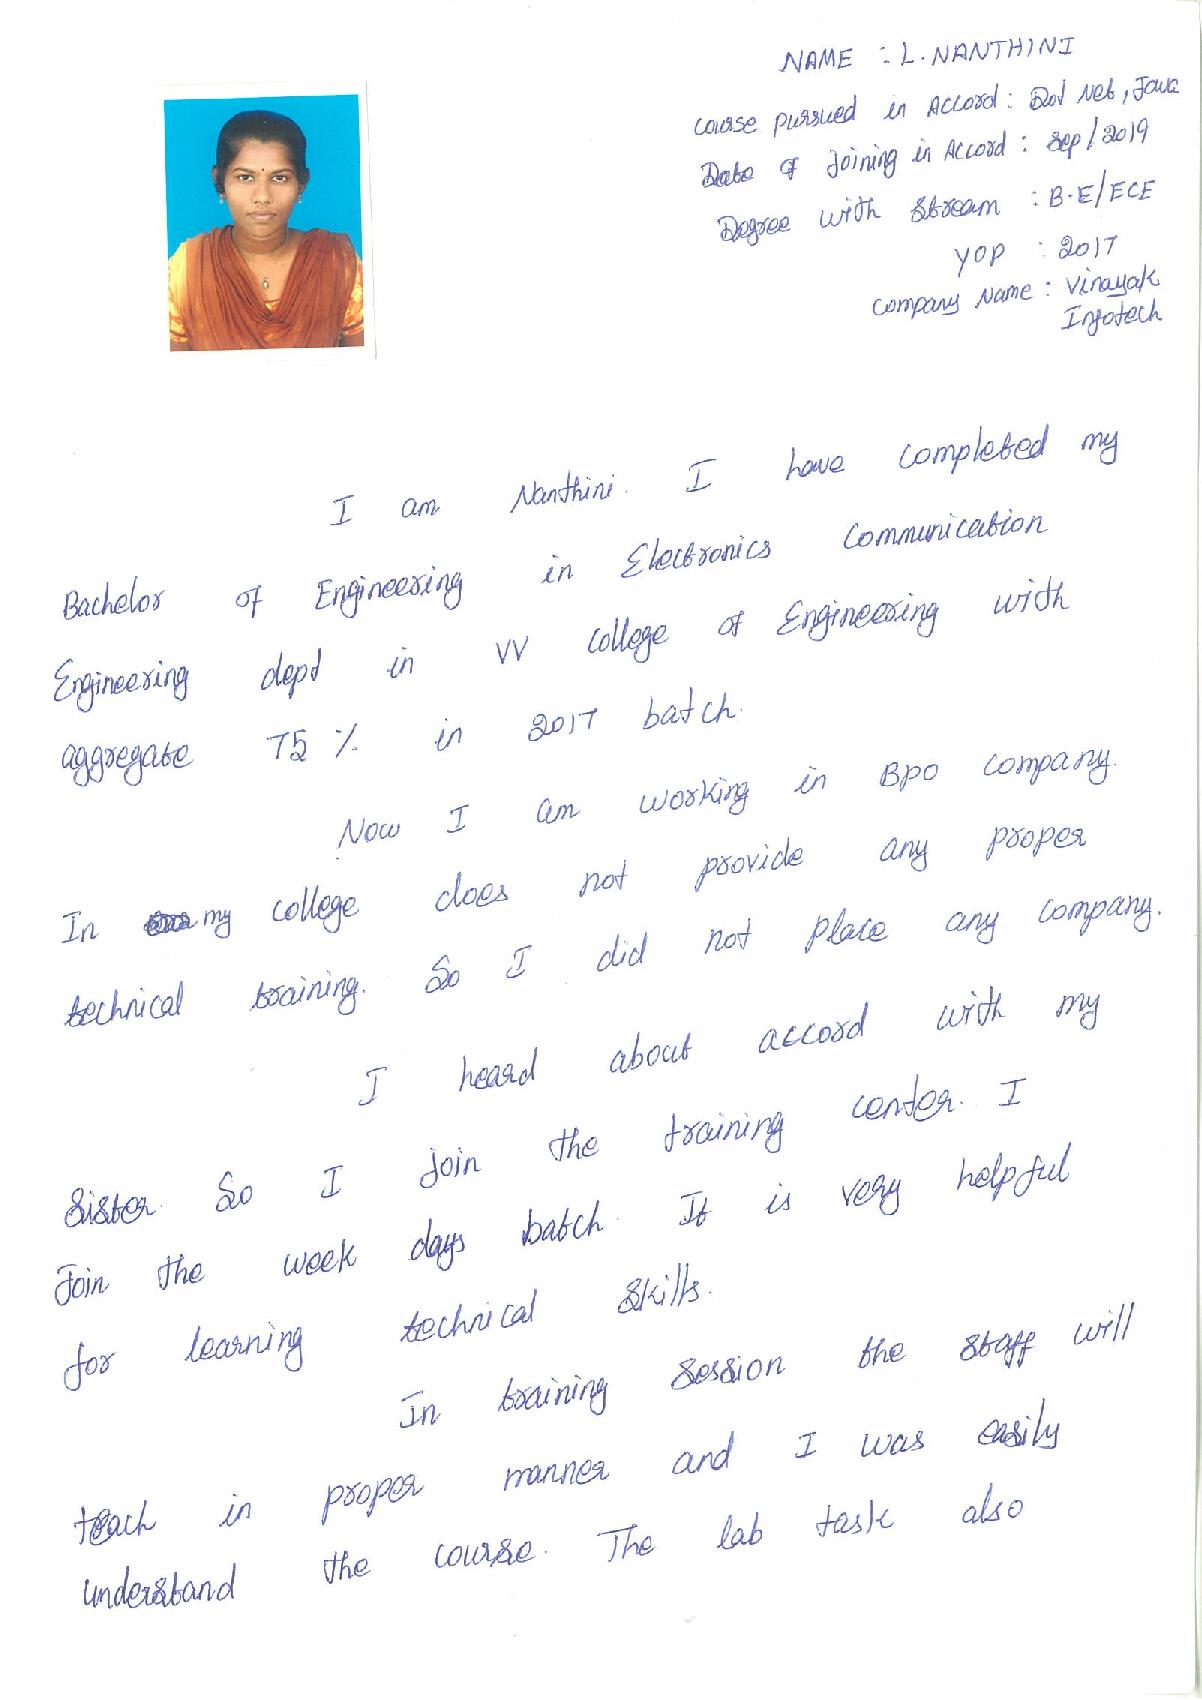 NAME : L. NANTHINI
Course pursued in Accord : Dot Net, Java
Date of Joining in Accord : Sep/2019
Degree with Stream : B.E/ECE
YOP : 2017
Company Name : Vinayak
Infotech
I am Nanthini. I have completed my
Bachelor of Engineering in Electronics Communication
Engineering dept in VV College of Engineering with
aggregate 75 % in 2017 batch.
Now I am working in BPO company.
In my college does not provide any proper
technical training. So I did not place any company.
I heard about accord with my
Sister. So I join the training center. I
Join the week days batch. It is very helpful
for learning technical skills.
In training session the staff will
teach in proper manner and I was easily
understand the course. The lab task also